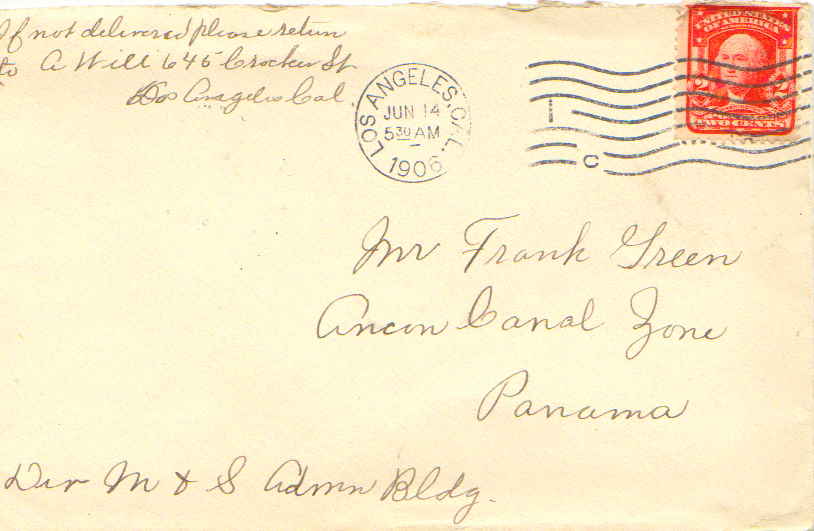 If not delivered please return
to A Will 645 Crocker St
Los Angeles Cal
LOS ANGELES, CAL.
JUN 14
5 30 AM
1906
1
C
UNITED STATES
OF AMERICA
2 2
TWO CENTS
Mr Frank Green
Ancon Canal Zone
Panama
Div M & S Admn Bldg.